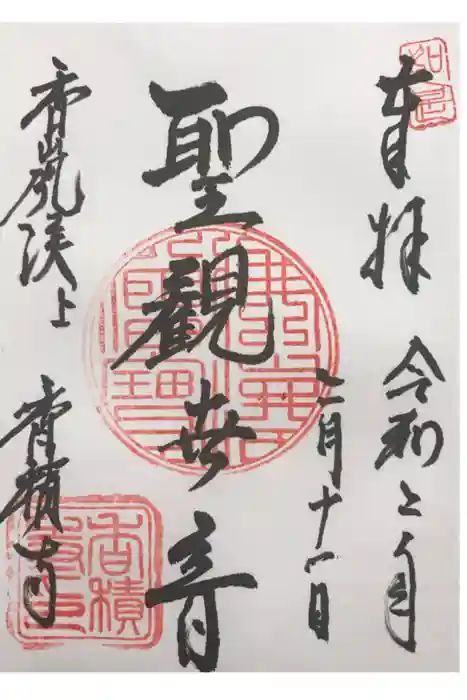 奉拝 令和二年
二月十一日
聖觀世音
香嵐渓上 香積寺
香積
寺印